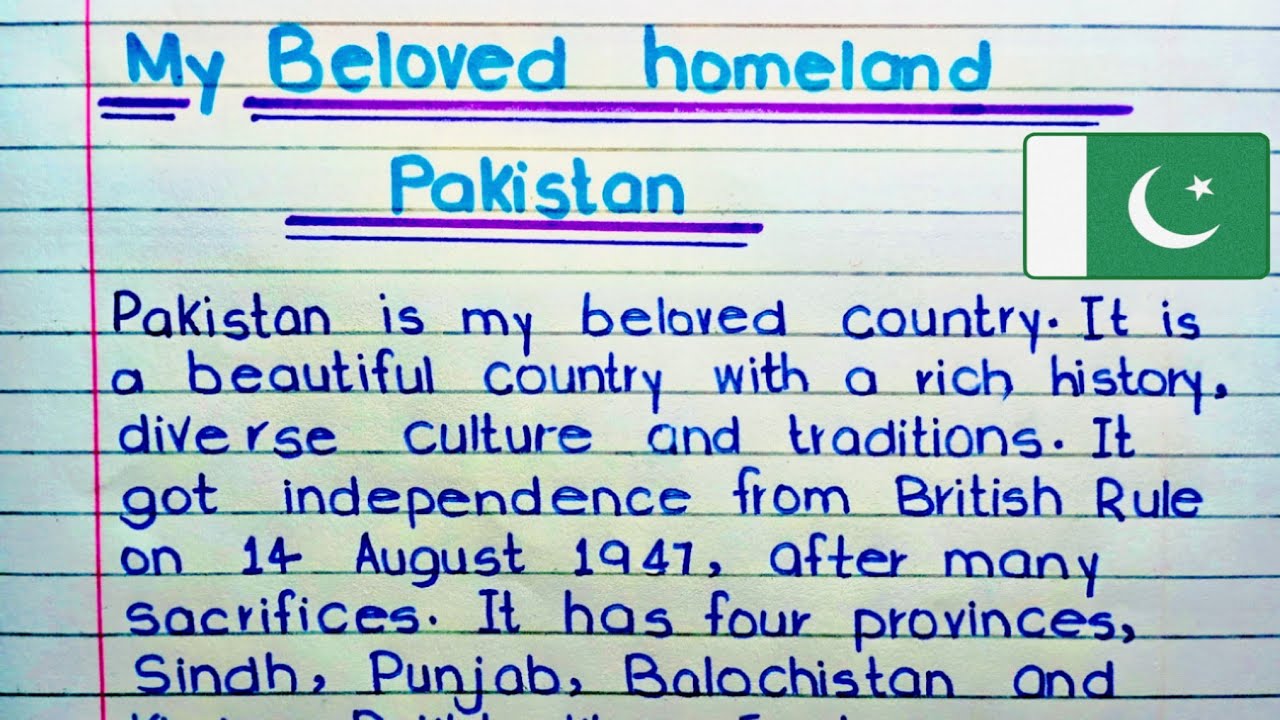 My Beloved homeland
Pakistan
Pakistan is my beloved country. It is
a beautiful country with a rich history,
diverse culture and traditions. It
got independence from British Rule
on 14 August 1947, after many
sacrifices. It has four provinces,
Sindh, Punjab, Balochistan and